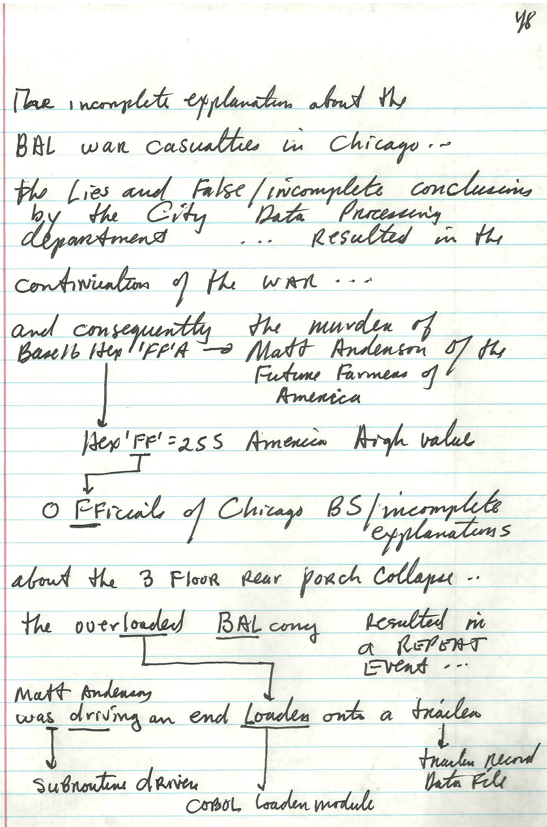 4/8
The incomplete explanation about the
BAL war casualties in Chicago...
the Lies and False/incomplete conclusions
by the City Data Processing
department ... Resulted in the
continuation of the WAR ...
and consequently the murder of
Base16 Hex 'FF'A → Matt Anderson of the
Future Farmers of
America
Hex 'FF' = 255 America High value
OFFicials of Chicago BS/incomplete
explanations
about the 3 Floor Rear porch Collapse ..
the overloaded BALcony Resulted in
a REPEAT
Event ...
Matt Anderson
was driving an end Loader onto a trailer
trailer record
Data File
subroutine driver
COBOL Loader module